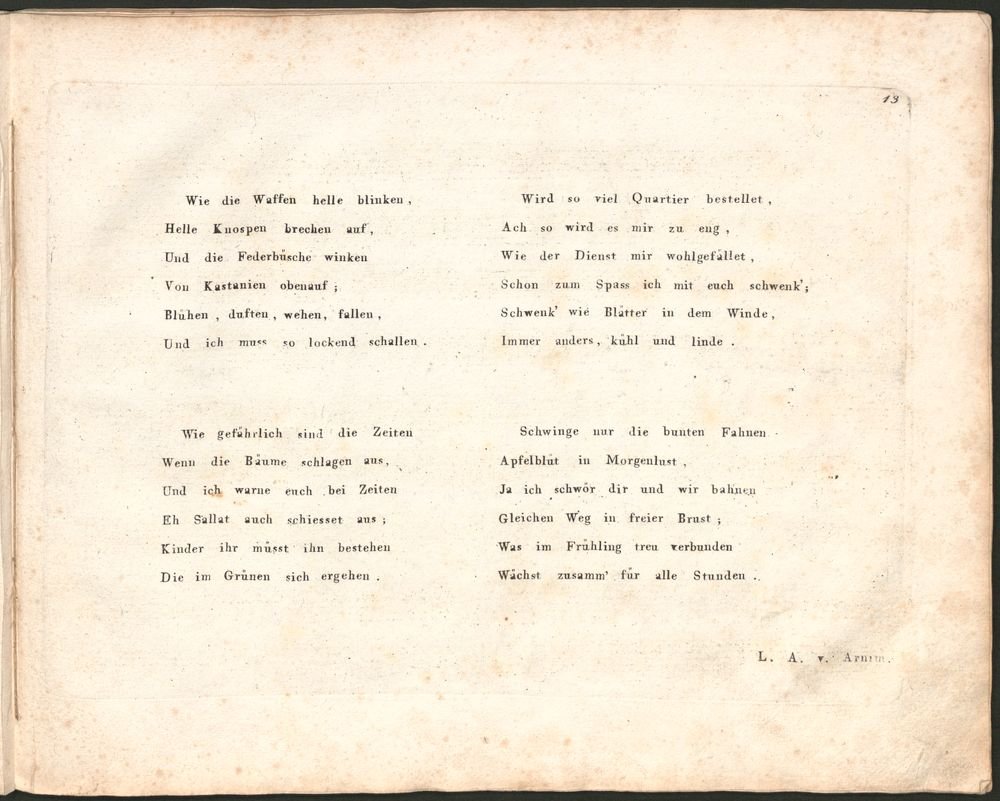 13
Wie die Waffen helle blinken,
Helle Knospen brechen auf,
Und die Federbüsche winken
Von Kastanien obenauf;
Blühen, duften, wehen, fallen,
Und ich muss so lockend schallen.
Wie gefährlich sind die Zeiten
Wenn die Bäume schlagen aus,
Und ich warne euch bei Zeiten
Eh Sallat auch schiesset aus;
Kinder ihr müsst ihn bestehen
Die im Grünen sich ergehen.
Wird so viel Quartier bestellet,
Ach so wird es mir zu eng,
Wie der Dienst mir wohlgefället,
Schon zum Spass ich mit euch schwenk';
Schwenk' wie Blätter in dem Winde,
Immer anders, kühl und linde.
Schwinge nur die bunten Fahnen
Apfelblüt in Morgenlust,
Ja ich schwör dir und wir bahnen
Gleichen Weg in freier Brust;
Was im Frühling treu verbunden
Wächst zusamm' für alle Stunden.
L. A. v. Arnim.